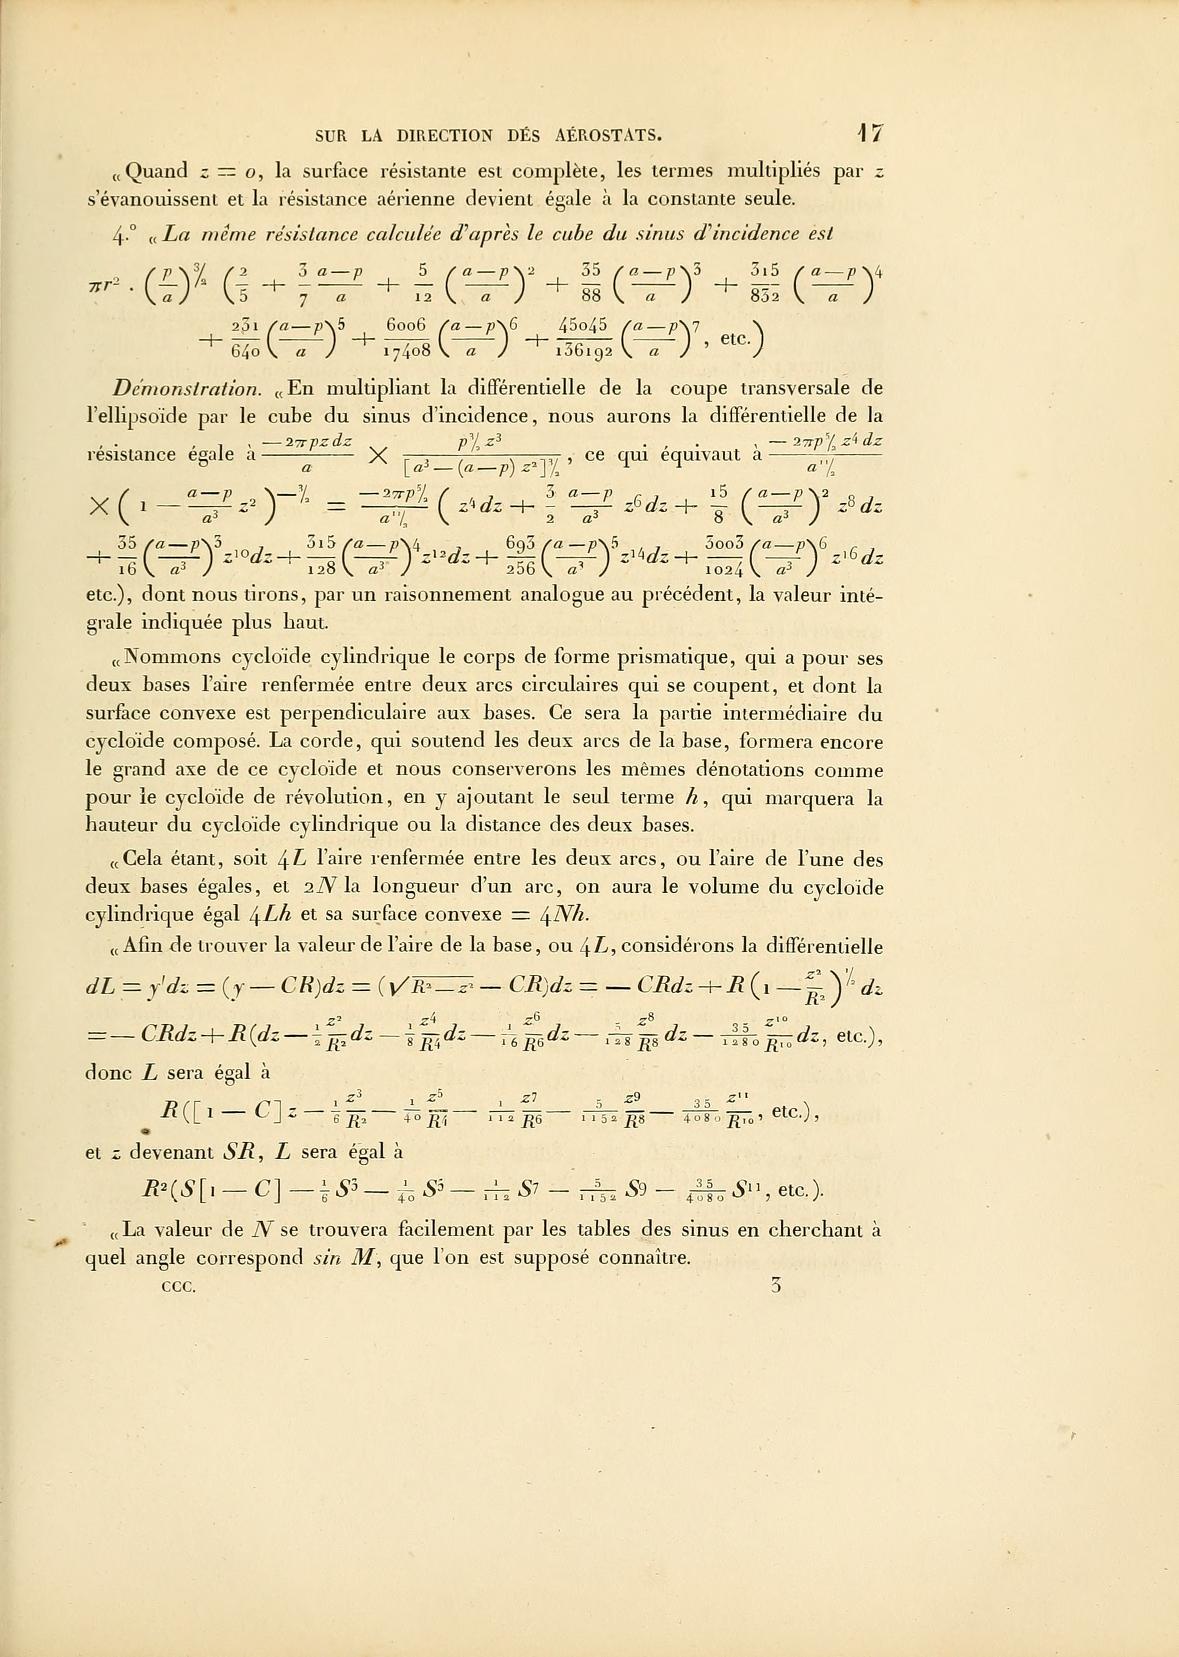 SUR LA DIRECTION DÉS AÉROSTATS. 17
«Quand z = o, la surface résistante est complète, les termes multipliés par z
s'évanouissent et la résistance aérienne devient égale à la constante seule.
4.° «La même résistance calculée d'après le cube du sinus d'incidence est
πr² . (p/a)^3/2 (2/5 + 3/7 a—p/a + 5/12 (a—p/a)² + 35/88 (a—p/a)³ + 315/832 (a—p/a)⁴
+ 231/640 (a—p/a)⁵ + 6006/17408 (a—p/a)⁶ + 45045/136192 (a—p/a)⁷, etc.)
Démonstration. «En multipliant la différentielle de la coupe transversale de
l'ellipsoïde par le cube du sinus d'incidence, nous aurons la différentielle de la
résistance égale à —2πpzdz/a × p^3/2 z³/[a³—(a—p) z²]^3/2, ce qui équivaut à —2πp^5/2 z⁴ dz/a^11/2
×(1 — a—p/a³ z²)^—3/2 = —2πp^5/2/a^11/2 (z⁴dz + 3/2 a—p/a³ z⁶dz + 15/8 (a—p/a³)² z⁸dz
+ 35/16 (a—p/a³)³ z¹⁰dz + 315/128 (a—p/a³)⁴ z¹²dz + 693/256 (a—p/a³)⁵ z¹⁴dz + 3003/1024 (a—p/a³)⁶ z¹⁶dz
etc.), dont nous tirons, par un raisonnement analogue au précédent, la valeur inté-
grale indiquée plus haut.
«Nommons cycloïde cylindrique le corps de forme prismatique, qui a pour ses
deux bases l'aire renfermée entre deux arcs circulaires qui se coupent, et dont la
surface convexe est perpendiculaire aux bases. Ce sera la partie intermédiaire du
cycloïde composé. La corde, qui soutend les deux arcs de la base, formera encore
le grand axe de ce cycloïde et nous conserverons les mêmes dénotations comme
pour le cycloïde de révolution, en y ajoutant le seul terme h, qui marquera la
hauteur du cycloïde cylindrique ou la distance des deux bases.
«Cela étant, soit 4L l'aire renfermée entre les deux arcs, ou l'aire de l'une des
deux bases égales, et 2N la longueur d'un arc, on aura le volume du cycloïde
cylindrique égal 4Lh et sa surface convexe = 4Nh.
«Afin de trouver la valeur de l'aire de la base, ou 4L, considérons la différentielle
dL = y'dz = (y — CR)dz = (√R²—z² — CR)dz = — CRdz + R (1 — z²/R²)^1/2 dz
= — CRdz + R(dz — 1/2 z²/R² dz — 1/8 z⁴/R⁴ dz — 1/16 z⁶/R⁶ dz — 5/128 z⁸/R⁸ dz — 35/1280 z¹⁰/R¹⁰ dz, etc.),
donc L sera égal à
R([1 — C]z — 1/6 z³/R² — 1/40 z⁵/R⁴ — 1/112 z⁷/R⁶ — 5/1152 z⁹/R⁸ — 35/4080 z¹¹/R¹⁰, etc.),
et z devenant SR, L sera égal à
R²(S[1 — C] — 1/6 S³ — 1/40 S⁵ — 1/112 S⁷ — 5/1152 S⁹ — 35/4080 S¹¹, etc.).
«La valeur de N se trouvera facilement par les tables des sinus en cherchant à
quel angle correspond sin M, que l'on est supposé connaître.
CCC. 3